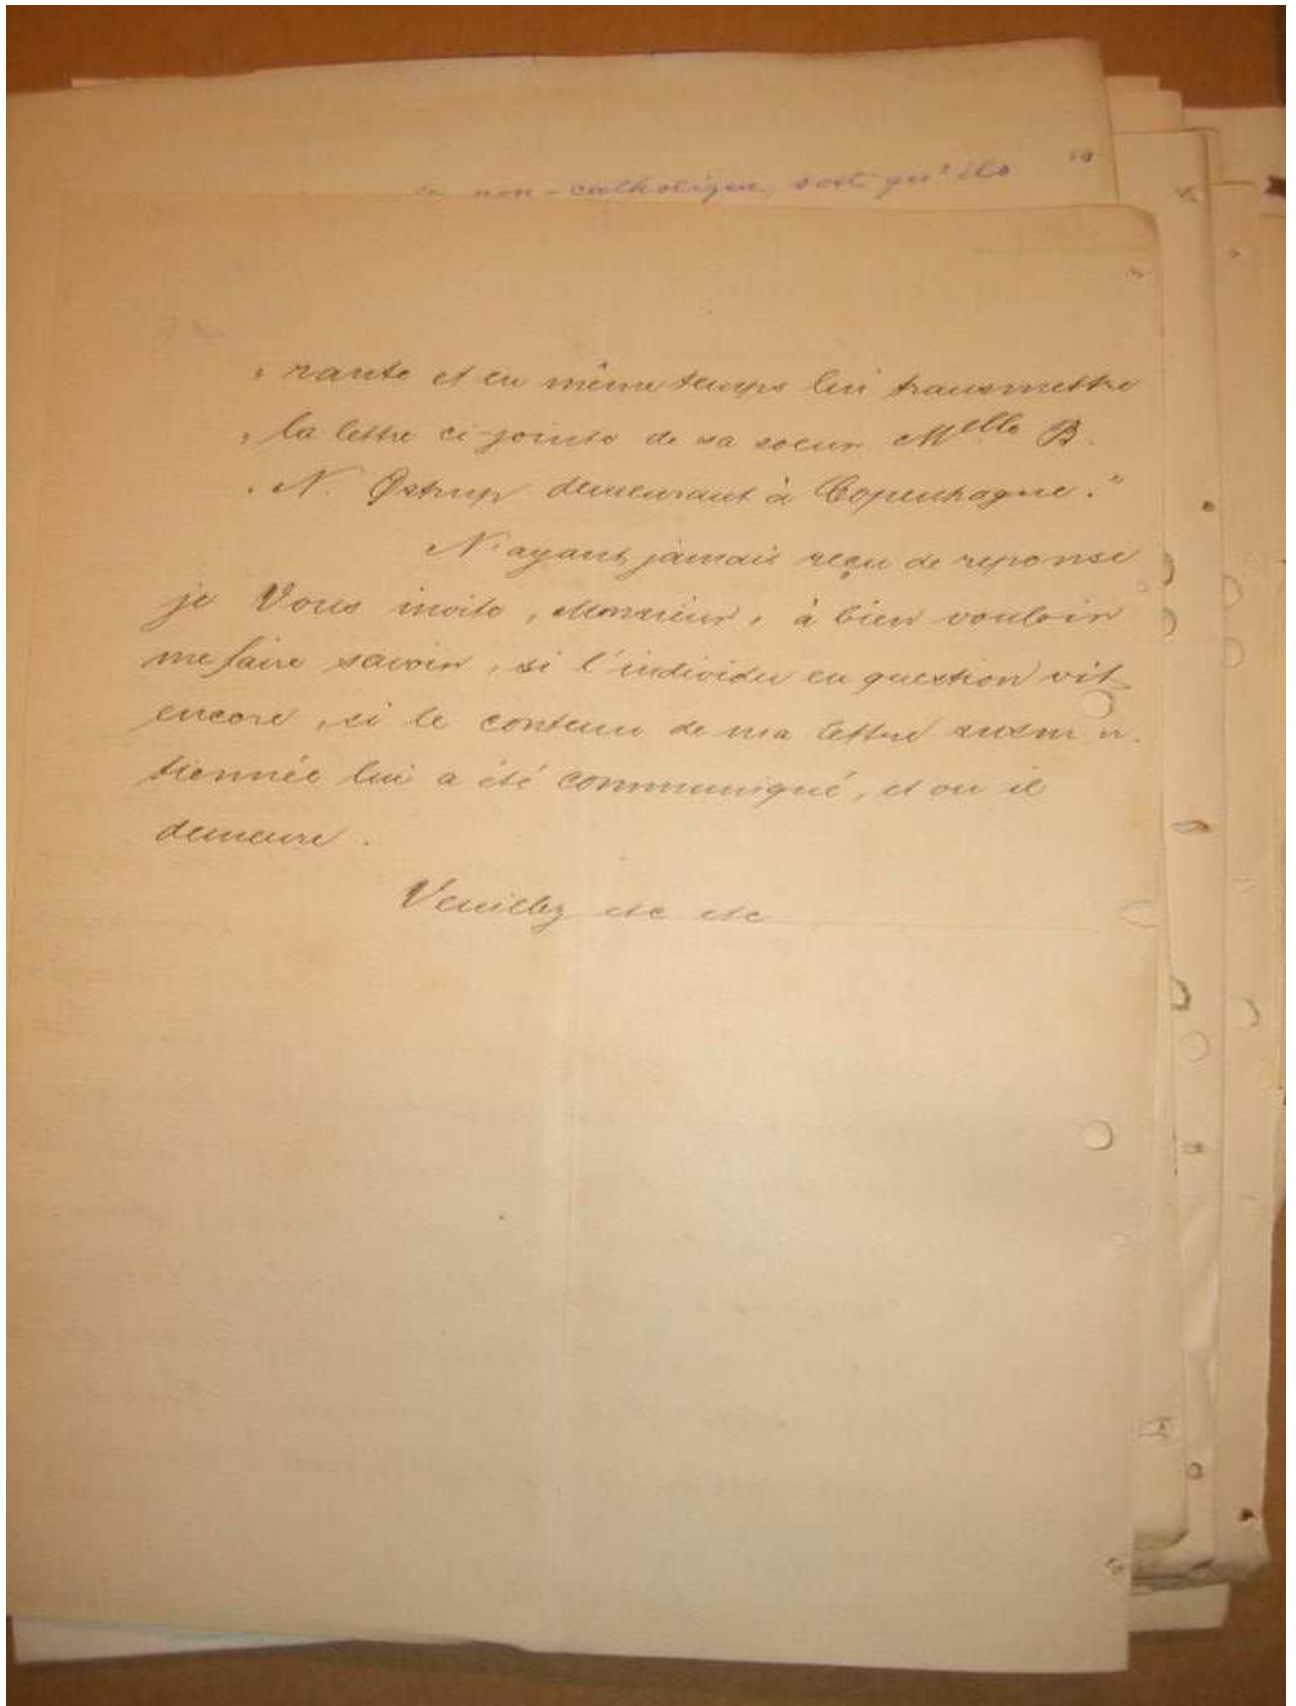 non-catholique, soit qu'ils
„ rante et en même temps lui transmettre
„ la lettre ci-jointe de sa soeur Melle B.
„ N. Østrup demeurant à Copenhague."
N'ayant jamais reçu de reponse
je Vous invite, Monsieur, à bien vouloir
me faire savoir, si l'individu en question vit
encore, si le contenu de ma lettre susm
tionnée lui a été communiqué, et ou il
demeure.
Veuillez etc etc